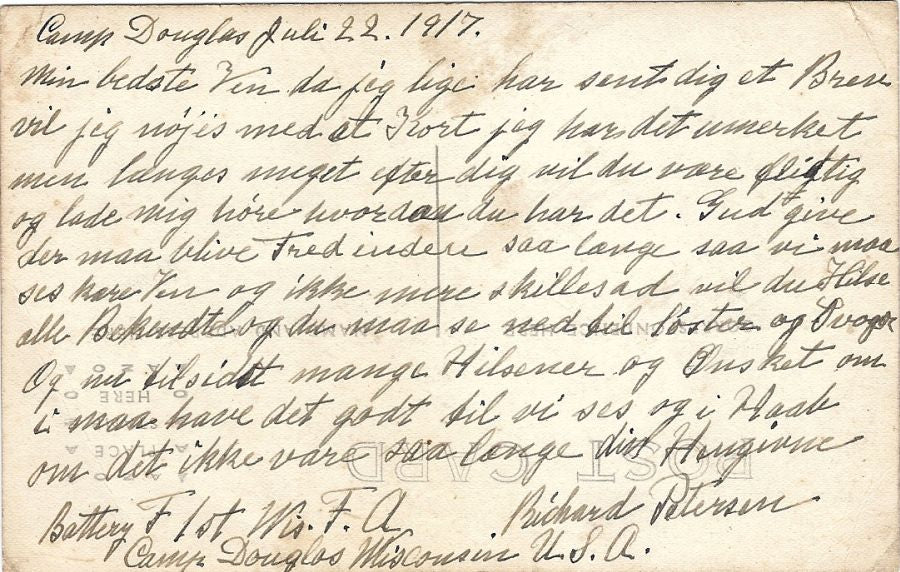 Camp Douglas Juli 22. 1917.
Min bedste Ven da jeg lige har sent dig et Brev
vil jeg nøjes med et Kort jeg har det umerket
men længes meget efter dig vil du være flittig
og lade mig høre hvordan du har det. Gud give
der maa blive Fred indere saa længe saa vi maa
ses kære Ven og ikke mere skilles ad vil du Hilse
alle Bekendte og du maa se ned til Søster og
Og nu tilsidst mange Hilsener og Ønsket om
i maa have det godt til vi ses og i Haab
om det ikke vare saa længe din Hengivne
Richard Petersen
Battery F 1st Wis. F. A.
Camp Douglas Wisconsin U. S. A.
POST CARD
CORRESPONDENCE HERE
NAME AND ADDRESS HERE
AZO
PLACE
HERE
AZO